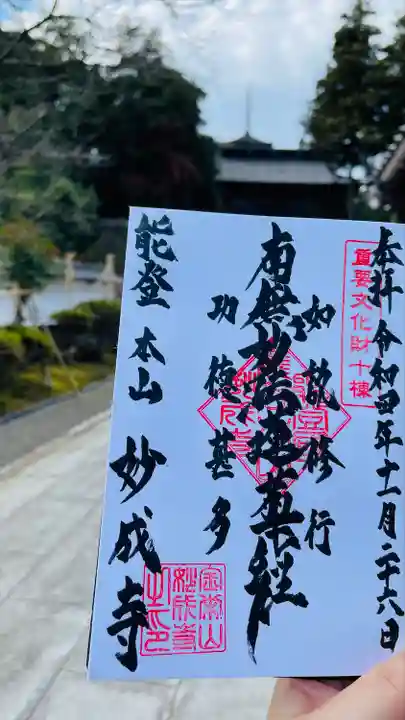 奉拝 令和四年十一月二十六日
重要文化財十棟
如説修行
南無妙法蓮華経
功徳甚多
能登 本山 妙成寺
金榮山
妙成寺
之印